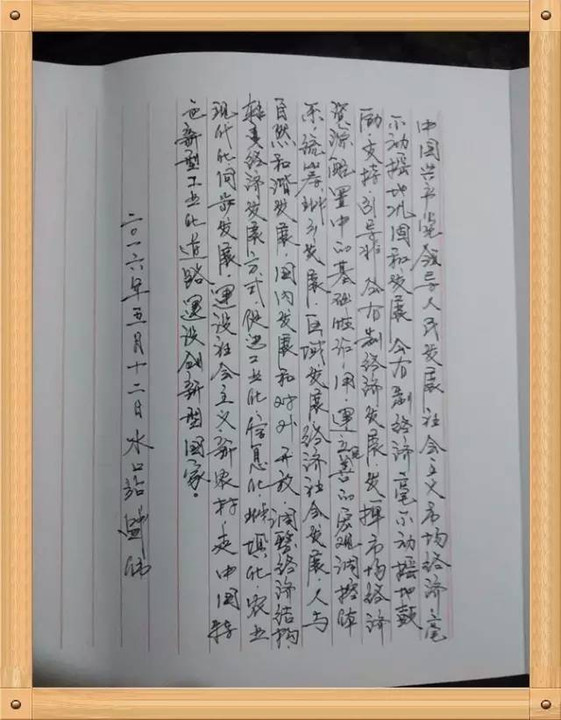 中国共产党领导人民发展社会主义市场经济毫
不动摇地巩固和发展公有制经济毫不动摇地鼓
励、支持、引导非公有制经济发展、发挥市场经济
资源配置中的基础性作用、建立完善的宏观调控体
系、统筹城乡发展、区域发展经济社会发展、人与
自然和谐发展、国内发展和对外开放、调整经济结构、
转变经济发展方式促进工业化、信息化、城镇化农业
现代化同步发展、建设社会主义新农村走中国特
色新型工业化道路建设创新型国家。
二〇一六年五月十二日 水口站